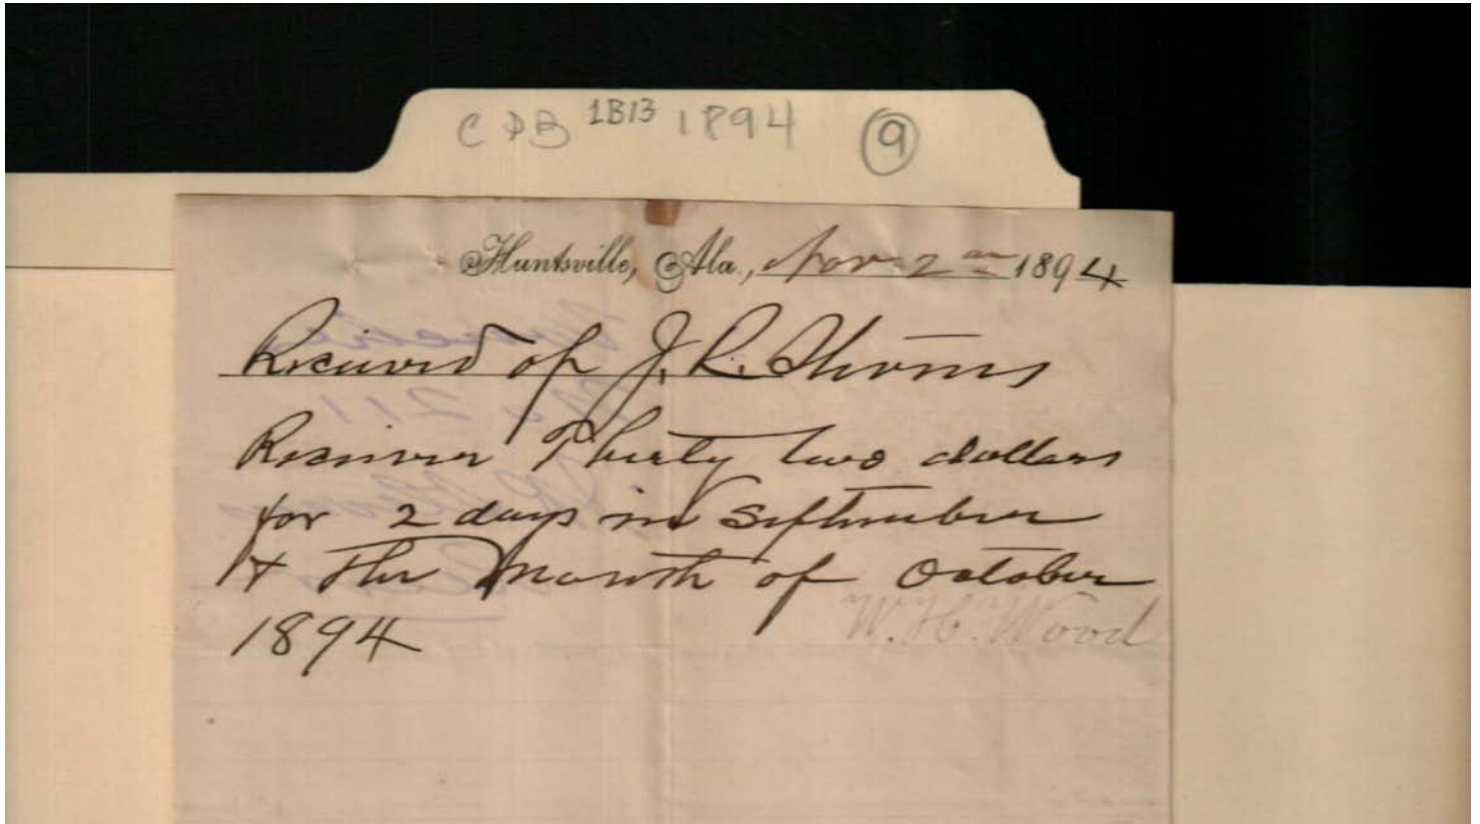 CDB 1B13 1894 9
Huntsville, Ala., Nov 2nd 1894
Received of J. R. Stevens
Receiver Thirty two dollars
for 2 days in September
& the Month of October
1894
W. H. Wood